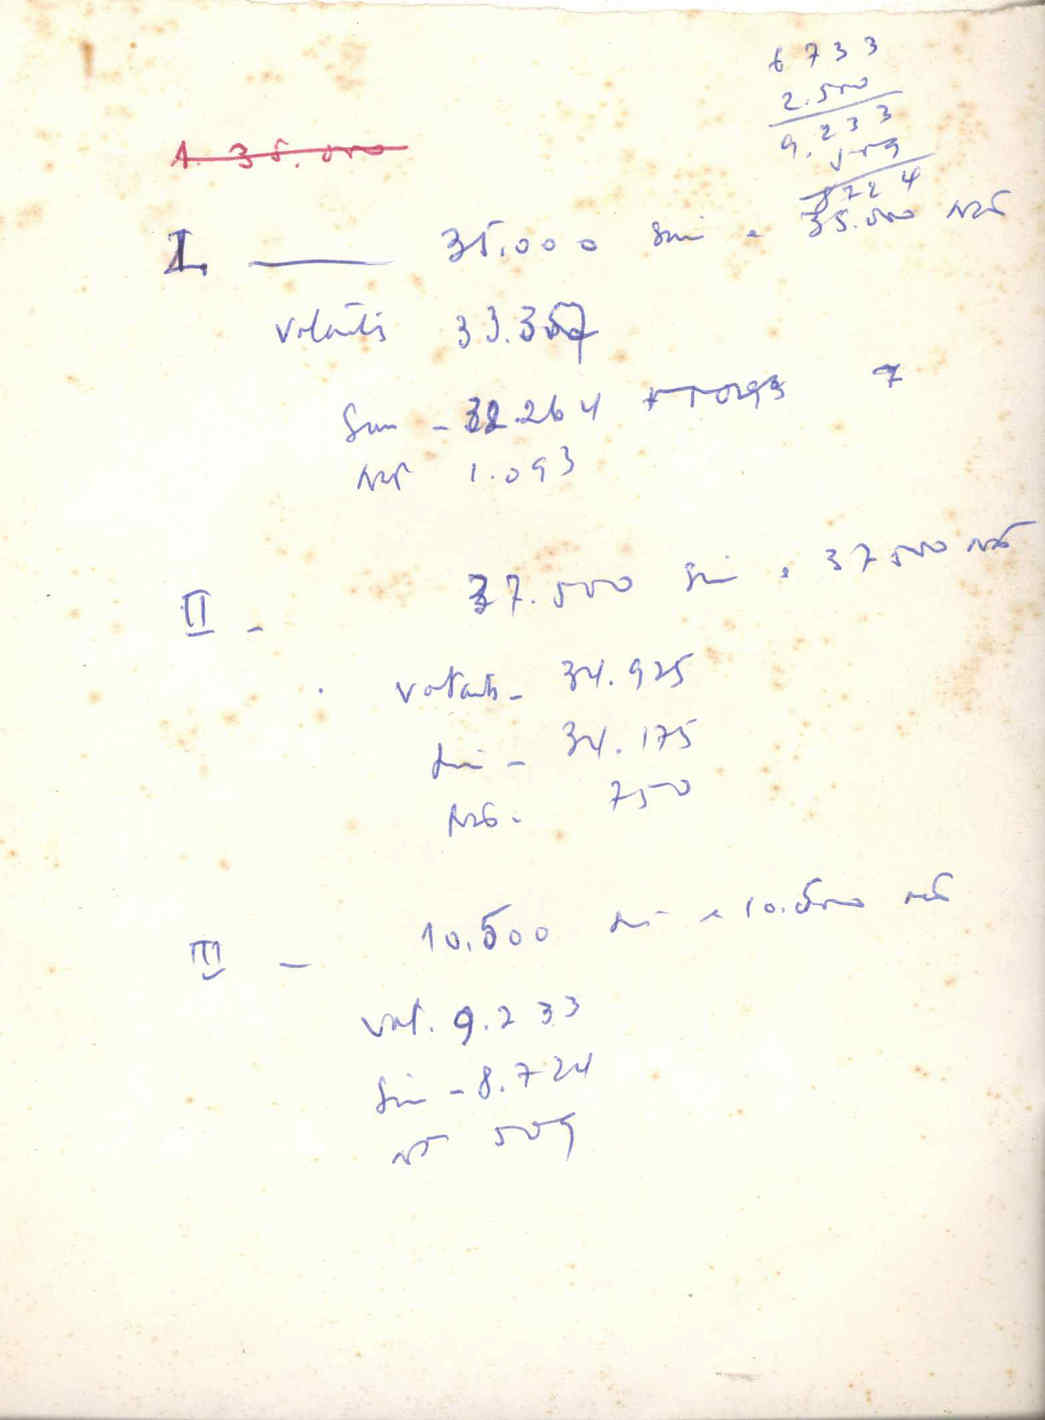 6733
2.500
9.233
509
8724
1. 35.000
I. 35.000 Sim e 35.000 Não
Votantes 33.357
Sim - 32.264 + 1093 7
Não 1.093
II - 37.500 Sim e 37500 Não
votantes - 34.925
Sim - 34.175
Não - 750
III - 10.500 Sim e 10.500 não
vot. 9.233
Sim - 8.724
não 509